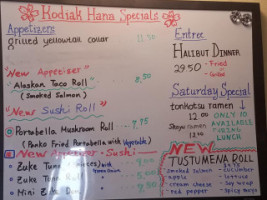 Kodiak Hana Specials
Appetizers
Grilled yellowtail collar
"New Appetizer"
Alaskan Taco Roll
(Smoked Salmon)
"New Sushi Roll"
Portabella Mushroom Roll 7.95
(Panko Fried Portabella with Vegetable)
New Appetizer - Sushi
Zuke Tuna
Zuke Tuna
Mini Zuke Don
Entree
HALIBUT DINNER
29.50 - Fried
Saturday Special
tonkotsu ramen
12.00 ONLY 10
AVAILABLE
DURING
LUNCH
NEW
TUSTUMENA ROLL
smoked salmon
apple
cream cheese
red pepper
lettuce
soy wrap
spicy mayo